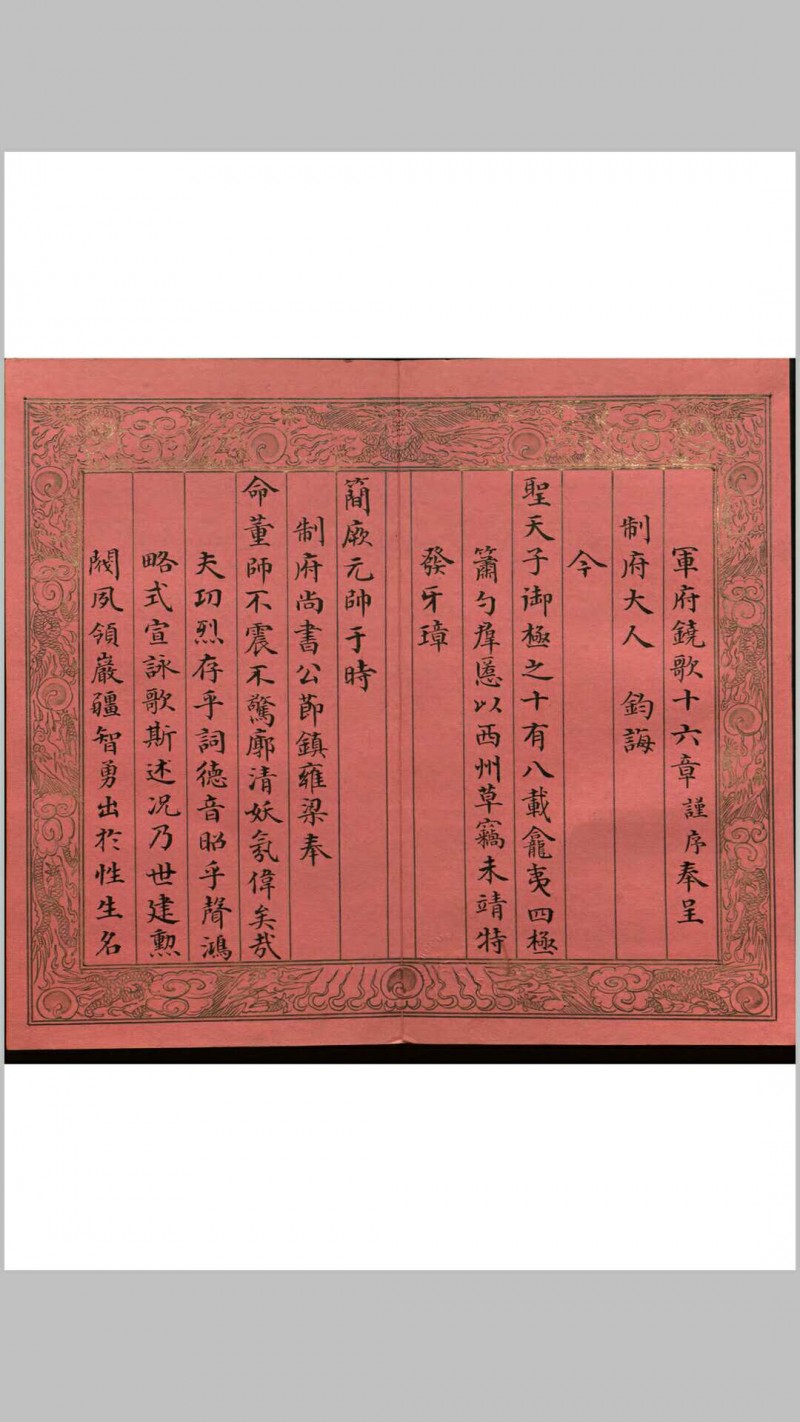 軍府鐃歌十六章謹序奉呈
制府大人 鈞誨
今
聖天子御極之十有八載龕夷四極
簫勺羣慝以西州草竊未靖特
發牙璋
簡厥元帥于時
制府尚書公節鎮雍梁奉
命董師不震不驚廓清妖氛偉矣哉
夫功烈存乎詞德音昭乎聲鴻
略式宣詠歌斯述况乃世建勲
閥夙領巖疆智勇出於性生名